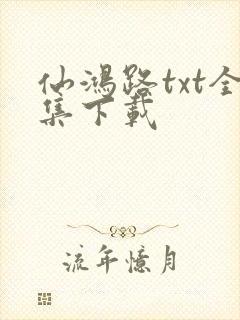 仙鸿路txt全
集下载
流年憶月